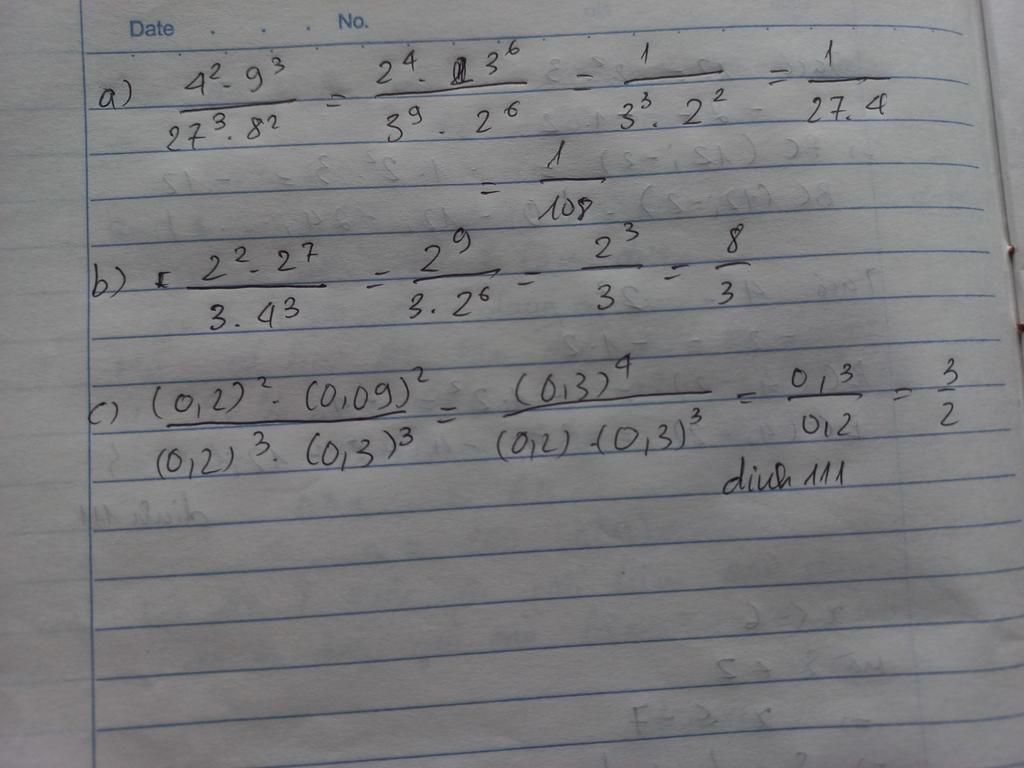 Date . . . No.
a) 4² . 9³ / 27³ . 8² = 2⁴ . 3⁶ / 3⁹ . 2⁶ = 1 / 3³ . 2² = 1 / 27 . 4
= 1 / 108
b) 2² . 2⁷ / 3 . 4³ = 2⁹ / 3 . 2⁶ = 2³ / 3 = 8 / 3
c) (0,2)² . (0,09)² / (0,2)³ . (0,3)³ = (0,3)⁴ / (0,2) . (0,3)³ = 0,3 / 0,2 = 3 / 2
dinh 111